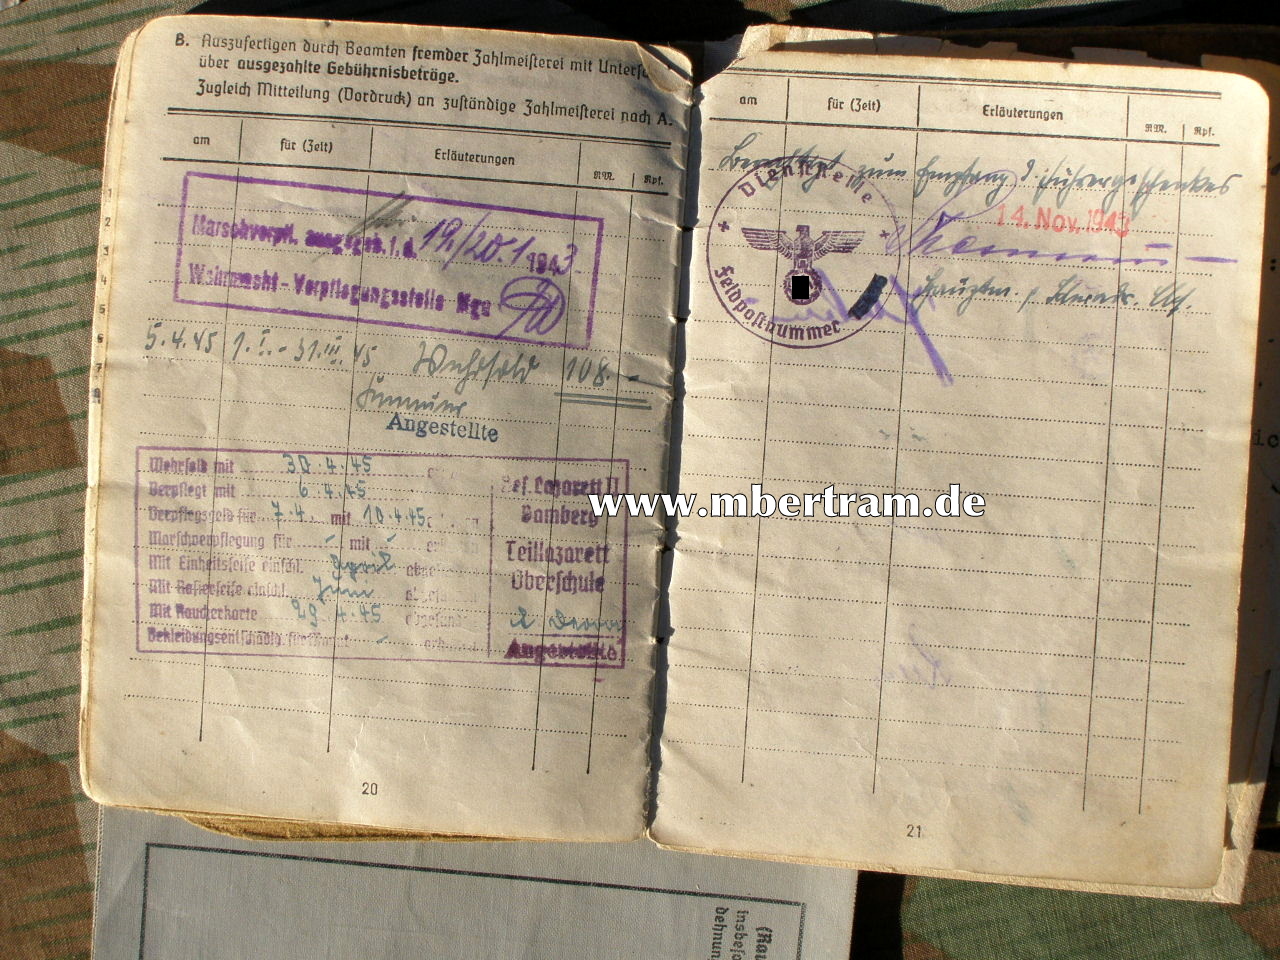 B. Auszufertigen durch Beamten fremder Zahlmeisterei mit
über ausgezahlte Gebührnisbeträge.
Zugleich Mitteilung (Vordruck) an zuständige Zahlmeisterei nach A.
am für (Zeit) Erläuterungen RM. Rpf.
Marschverpfl. ausgegeb. f. d. 19./20.1.1943
Wehrmacht-Verpflegungsstelle
5.4.45 1.I.-31.III.45 Wehrsold 108.-
Angestellte
Wehrsold mit 30.4.45
Verpflegt mit 6.4.45
Verpflegsgeld für 7.4. mit 10.4.45
Marschverpflegung für - mit -
Mit Einheitsseife einschl. April
Mit Rasierseife einschl. Juni
Mit Raucherkarte 29.4.45
Bekleidungsentschädig. für Monat -
Res. Lazarett II
Bamberg
Teillazarett
Oberschule
Angestellte
20
am für (Zeit) Erläuterungen RM. Rpf.
Berechtigt zum Empfang d. Führergeschenkes
14. Nov. 1943
Dienststelle
Feldpostnummer
21
www.mbertram.de